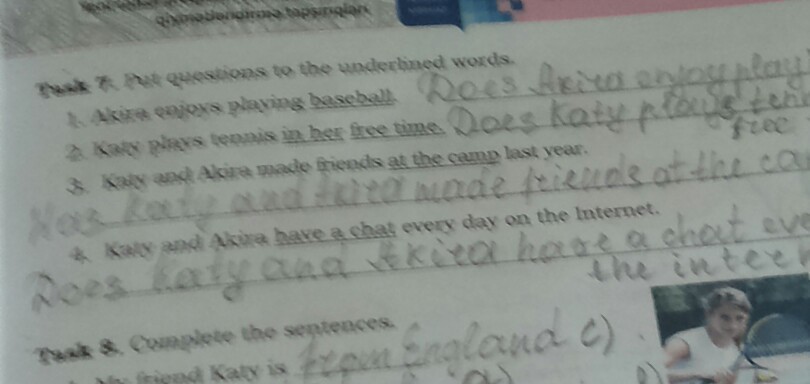 qiymətləndirmə tapşırıqları
Task 7. Put questions to the underlined words.
1. Akira enjoys playing baseball. Does Akira enjoy play
2. Katy plays tennis in her free time. Does Katy plays ten
free
3. Katy and Akira made friends at the camp last year.
Has Katy and Akira made friends at the ca
4. Katy and Akira have a chat every day on the Internet.
Does Katy and Akira have a chat eve
the inter
Task 8. Complete the sentences.
friend Katy is from England c)